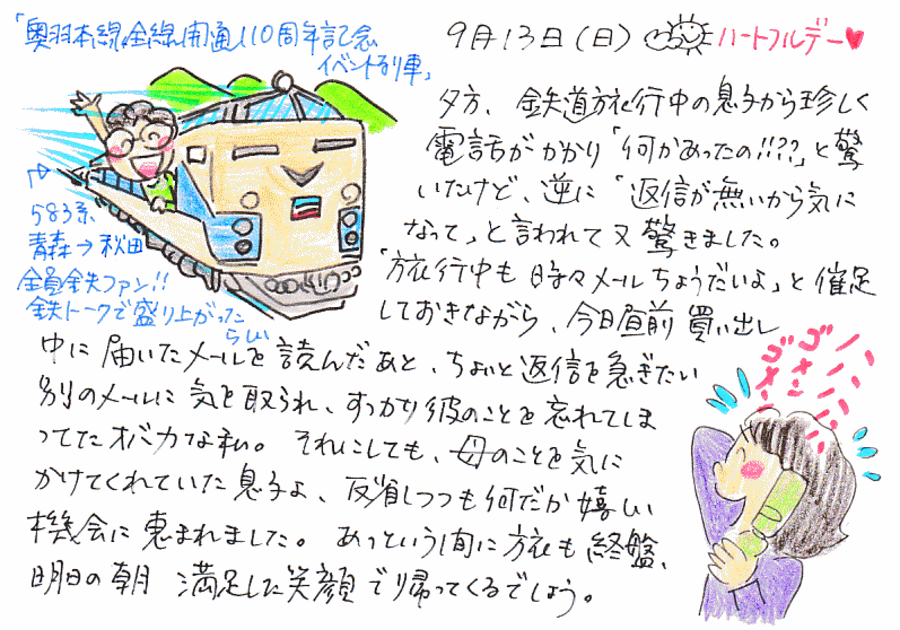 「奥羽本線全線開通110周年記念
イベント列車」
9月13日(日) ハートフルデー♥
夕方、鉄道旅行中の息子から珍しく
電話がかかり「何かあったの!!??」と驚
いたけど、逆に「返信が無いから気に
なって」と言われて又驚きました。
「旅行中も時々メールちょうだいよ」と催促
しておきながら、今日昼前買い出し
中に届いたメールを読んだあと、ちょいと返信を急ぎたい
別のメールに気を取られ、すっかり彼のことを忘れてしま
ってたオバカな私。それにしても、母のことを気に
かけてくれていた息子よ、反省しつつも何だか嬉しい
機会に恵まれました。あっという間に旅も終盤、
明日の朝 満足した笑顔で帰ってくるでしょう。
583系
青森→秋田
全員鉄ファン!!
鉄トークで盛り上がった
らしい
ゴメンゴメン